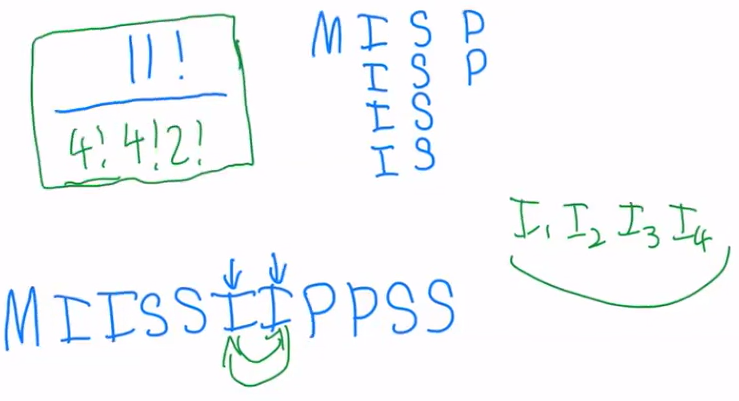 11!
4! 4! 2!
M I S P
I S P
I S
I S
I₁ I₂ I₃ I₄
MIISSIIPPSS